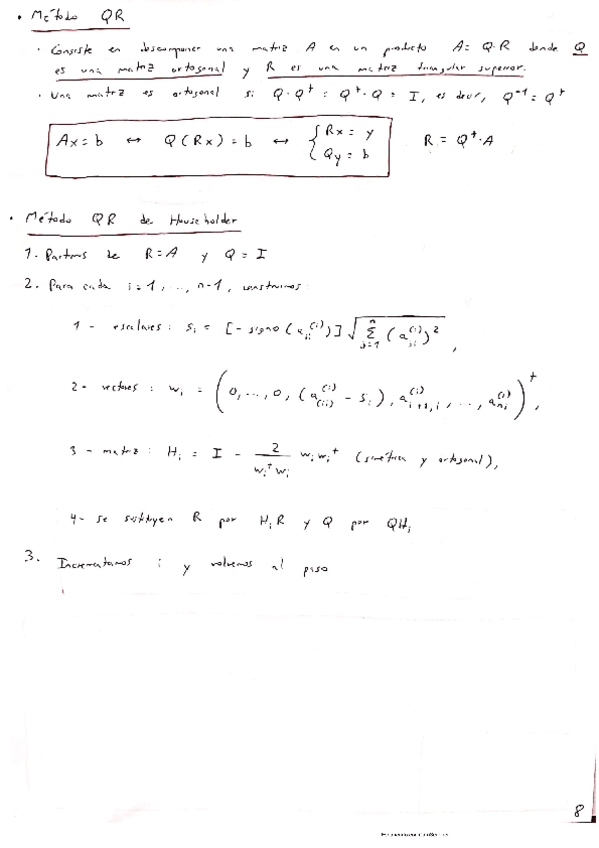 • Método QR
• Consiste en descomponer una matriz A en un producto A = Q·R donde Q
es una matriz ortogonal y R es una matriz triangular superior.
• Una matriz es ortogonal si Q·Qᵗ = Qᵗ·Q = I, es decir, Q⁻¹ = Qᵗ
Ax = b ↔ Q(Rx) = b ↔ { Rx = y
Qy = b R = Qᵗ·A
• Método QR de Householder
1. Partimos de R = A y Q = I
2. Para cada i = 1, ..., n-1, construimos:
1 - escalares: sᵢ = [- signo (aᵢᵢ⁽ⁱ⁾)] √ Σ (aⱼᵢ⁽ⁱ⁾)²,
2 - vectores: wᵢ = (0, ..., 0, (aᵢᵢ⁽ⁱ⁾ - sᵢ), aᵢ₊₁,ᵢ⁽ⁱ⁾, ..., aₙᵢ⁽ⁱ⁾)ᵗ,
3 - matriz: Hᵢ = I - 2 / wᵢᵗwᵢ wᵢwᵢᵗ (simétrica y ortogonal),
4 - se sustituyen R por HᵢR y Q por QHᵢ
3. Incrementamos i y volvemos al paso
8